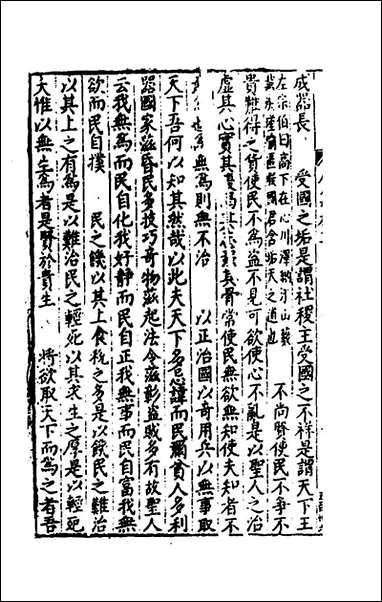 成器長　受國之垢是謂社稷主受國之不祥是謂天下王
左宗伯曰高下在心川澤納汙山藪
藏疾瑾瑜匿瑕國君含垢天之道也
不尚賢使民不爭不
貴難得之貨使民不為盜不見可欲使心不亂是以聖人之治
虛其心實其腹弱其志強其骨常使民無欲無知使夫知者不
為無為則無不治　以正治國以奇用兵以無事取
天下吾何以知其然哉以此夫天下多忌諱而民彌貧人多利
器國家滋昏民多技巧奇物滋起法令滋彰盜賊多有故聖人
云我無為而民自化我好靜而民自正我無事而民自富我無
欲而民自撲　民之饑以其上食稅之多是以饑民之難治
以其上之有為是以難治民之輕死以其求生之厚是以輕死
夫惟以無生為者是賢於貴生　將欲取天下而為之者吾